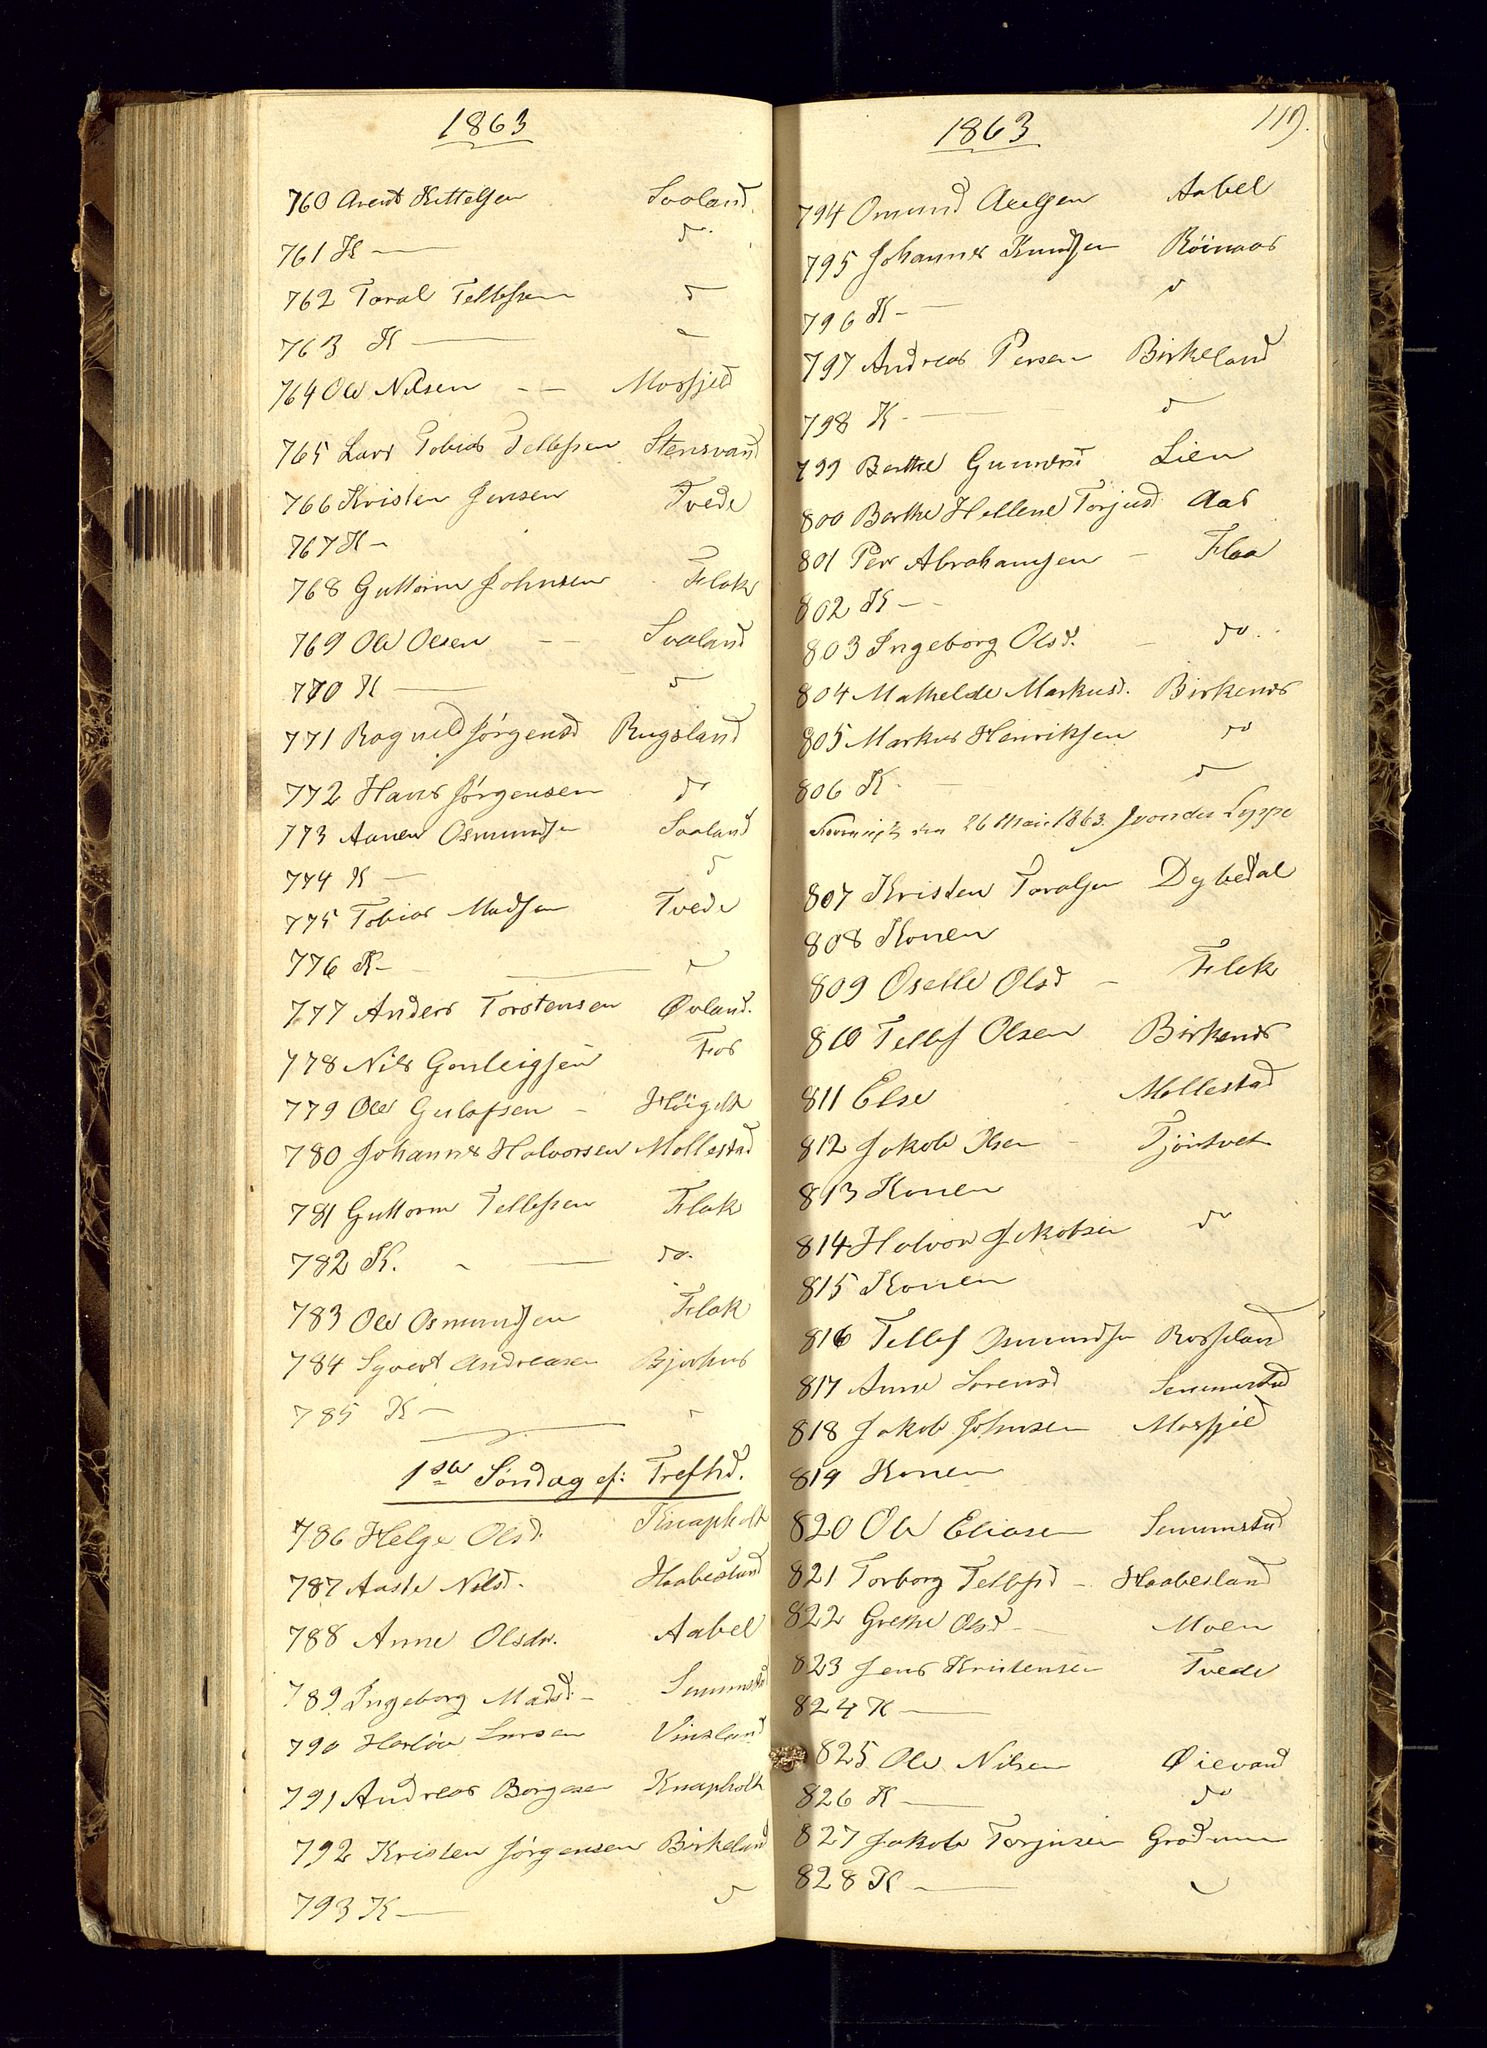 1863
760 Arent Kittelsen Svaland
761 K — do.
762 Taral Tellefsen do
763 K —
764 Ole Nilsen — — Mosfjeld
765 Lars Tobias Tellefsen Stensvand
766 Kristen Jensen Tvede
767 K —
768 Guttorm Johnsen Flak
769 Ole Olsen — — Svaland
770 K — do
771 Ragnild Jørgensd Rugsland
772 Hans Jørgensen do
773 Aanen Osmundsen Svaland
774 K — do
775 Tobias Madsen Tvede
776 K —
777 Anders Torstensen Øvland.
778 Nils Gunleigsen
779 Ole
780 Johannes Halvorsen Mollestad
781 Guttorm Tellefsen Flak
782 K. — do.
783 Ole Osmundsen Flak
784 Syvert Andreasen
785 K —
1ste Søndag ef: Trefhd.
786 Helge Olsd. Knapholt
787 Aaste Nilsd. Haabesland
788 Anne Olsdr. Aabel
789 Ingeborg Madsd. — Senumstad
790 Larsen Vinsland
791 Andreas Borgesen Knapholt
792 Kristen Jørgensen Birkeland
793 K — do
1863
119.
794 Omund Aabel
795 Johannes Knudsen
796 K — do
797 Andreas Persen Birkeland
798 K — do
799 Berthe Gunvd Lien
800 Berthe Hellene Torjusd Aas
801 Per Abrahamsen — Flaa
802 K —
803 Ingeborg Olsd. — do.
804 Mathelde Markusd. Birkenes
805 Markus Henriksen do
806 K. — do
26 Mai 1863.
807 Kristen Taralsen Dybedal
808 Konen
809 Oselle Olsd — Flak
810 Tellef Olsen Birkenes
811 Else Mollestad
812 Jakob — Tjöntvet
813 Konen
814 Halvor Jakobsen do
815 Konen
816 Tellef Omundsen Rosseland
817 Anne Sorensd Senumstad
818 Jakob Johnsen Mosfjeld
819 Konen
820 Ole Eliasen Senumstad
821 Torborg Tellefsd — Haabesland
822 Grethe Olsd — Moen
823 Jens Kristensen Tvede
824 K —
825 Ole Nilsen Øievand
826 K — do
827 Jakob Torjusen
828 K —